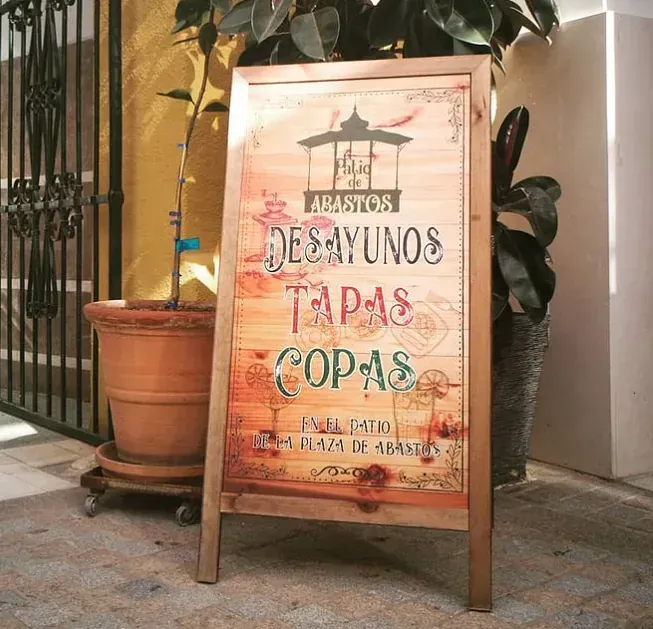 El Patio
de
ABASTOS
DESAYUNOS
TAPAS
COPAS
EN EL PATIO
DE LA PLAZA DE ABASTOS